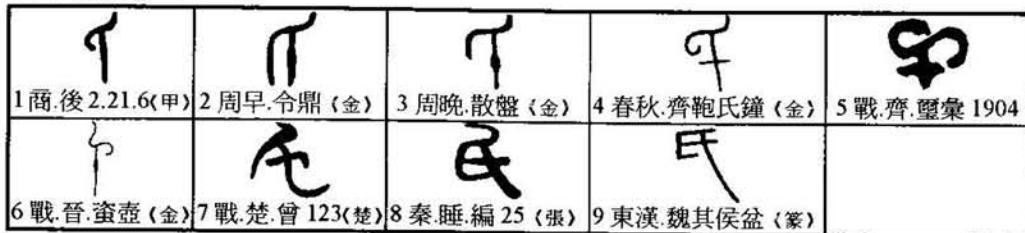 1 商.後 2.21.6(甲) 2 周早.令鼎《金》 3 周晚.散盤《金》 4 春秋.齊鞄氏鐘《金》 5 戰.齊.璽彙 1904
6 戰.晉.𧊒壺《金》 7 戰.楚.曾 123(楚) 8 秦.睡.編 25《張》 9 東漢.魏其侯盆《篆》